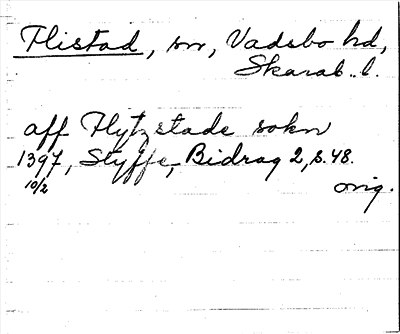 Flistad, sn, Vadsbo hd,
Skarab. l.
aff Flytzstade sokn
1397, Styffe, Bidrag 2, s. 48.
10/2 orig.